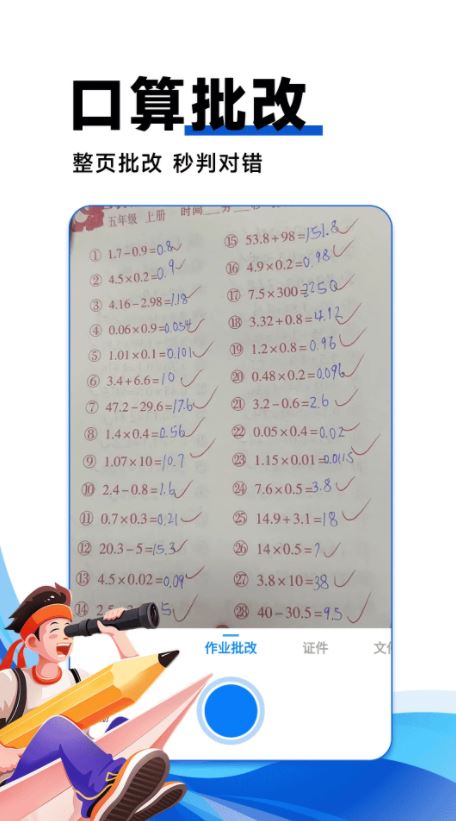 口算批改
整页批改 秒判对错
五年级 上册 时间 分
① 1.7-0.9=0.8
② 4.5×0.2=0.9
③ 4.16-2.98=1.18
④ 0.06×0.9=0.054
⑤ 1.01×0.1=0.101
⑥ 3.4+6.6=10
⑦ 47.2-29.6=17.6
⑧ 1.4×0.4=0.56
⑨ 1.07×10=10.7
⑩ 2.4-0.8=1.6
⑪ 0.7×0.3=0.21
⑫ 20.3-5=15.3
⑬ 4.5×0.02=0.09
⑭
⑮ 53.8+98=151.8
⑯ 4.9×0.2=0.98
⑰ 7.5×300=2250
⑱ 3.32+0.8=4.12
⑲ 1.2×0.8=0.96
⑳ 0.48×0.2=0.096
㉑ 3.2-0.6=2.6
㉒ 0.05×0.4=0.02
㉓ 1.15×0.01=0.0115
㉔ 7.6×0.5=3.8
㉕ 14.9+3.1=18
㉖ 14×0.5=7
㉗ 3.8×10=38
㉘ 40-30.5=9.5
作业批改 证件 文